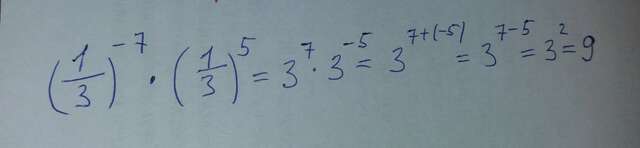 (1/3)^-7 · (1/3)^5 = 3^7 · 3^-5 = 3^7+(-5) = 3^7-5 = 3^2 = 9